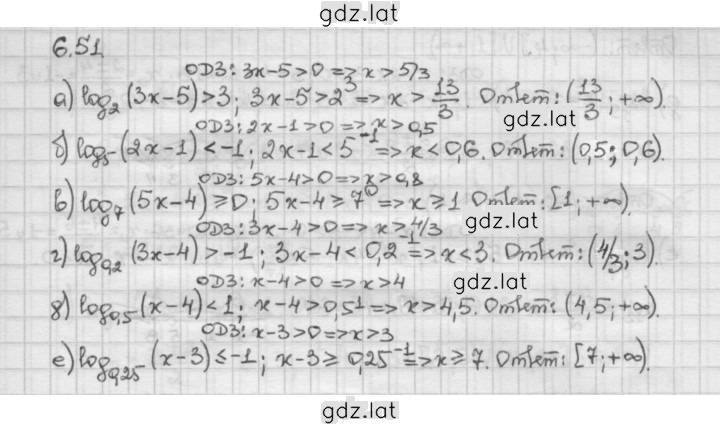 gdz.lat
6.51
ОДЗ: 3x-5>0 => x>5/3
а) log₂(3x-5)>3; 3x-5>2³ => x>13/3. Ответ: (13/3; +∞).
gdz.lat
ОДЗ: 2x-1>0 => x>0,5
б) log₅(2x-1)<-1; 2x-1<5⁻¹ => x<0,6. Ответ: (0,5; 0,6).
ОДЗ: 5x-4>0 => x>0,8
в) log₇(5x-4)≥0; 5x-4≥7⁰ => x≥1 Ответ: [1; +∞).
gdz.lat
ОДЗ: 3x-4>0 => x>4/3
г) log₀,₂(3x-4)>-1; 3x-4<0,2⁻¹ => x<3. Ответ: (4/3; 3).
ОДЗ: x-4>0 => x>4
gdz.lat
д) log₀,₅(x-4)<1; x-4>0,5¹ => x>4,5. Ответ: (4,5; +∞).
ОДЗ: x-3>0 => x>3
е) log₀,₂₅(x-3)≤-1; x-3≥0,25⁻¹ => x≥7. Ответ: [7; +∞).
gdz.lat